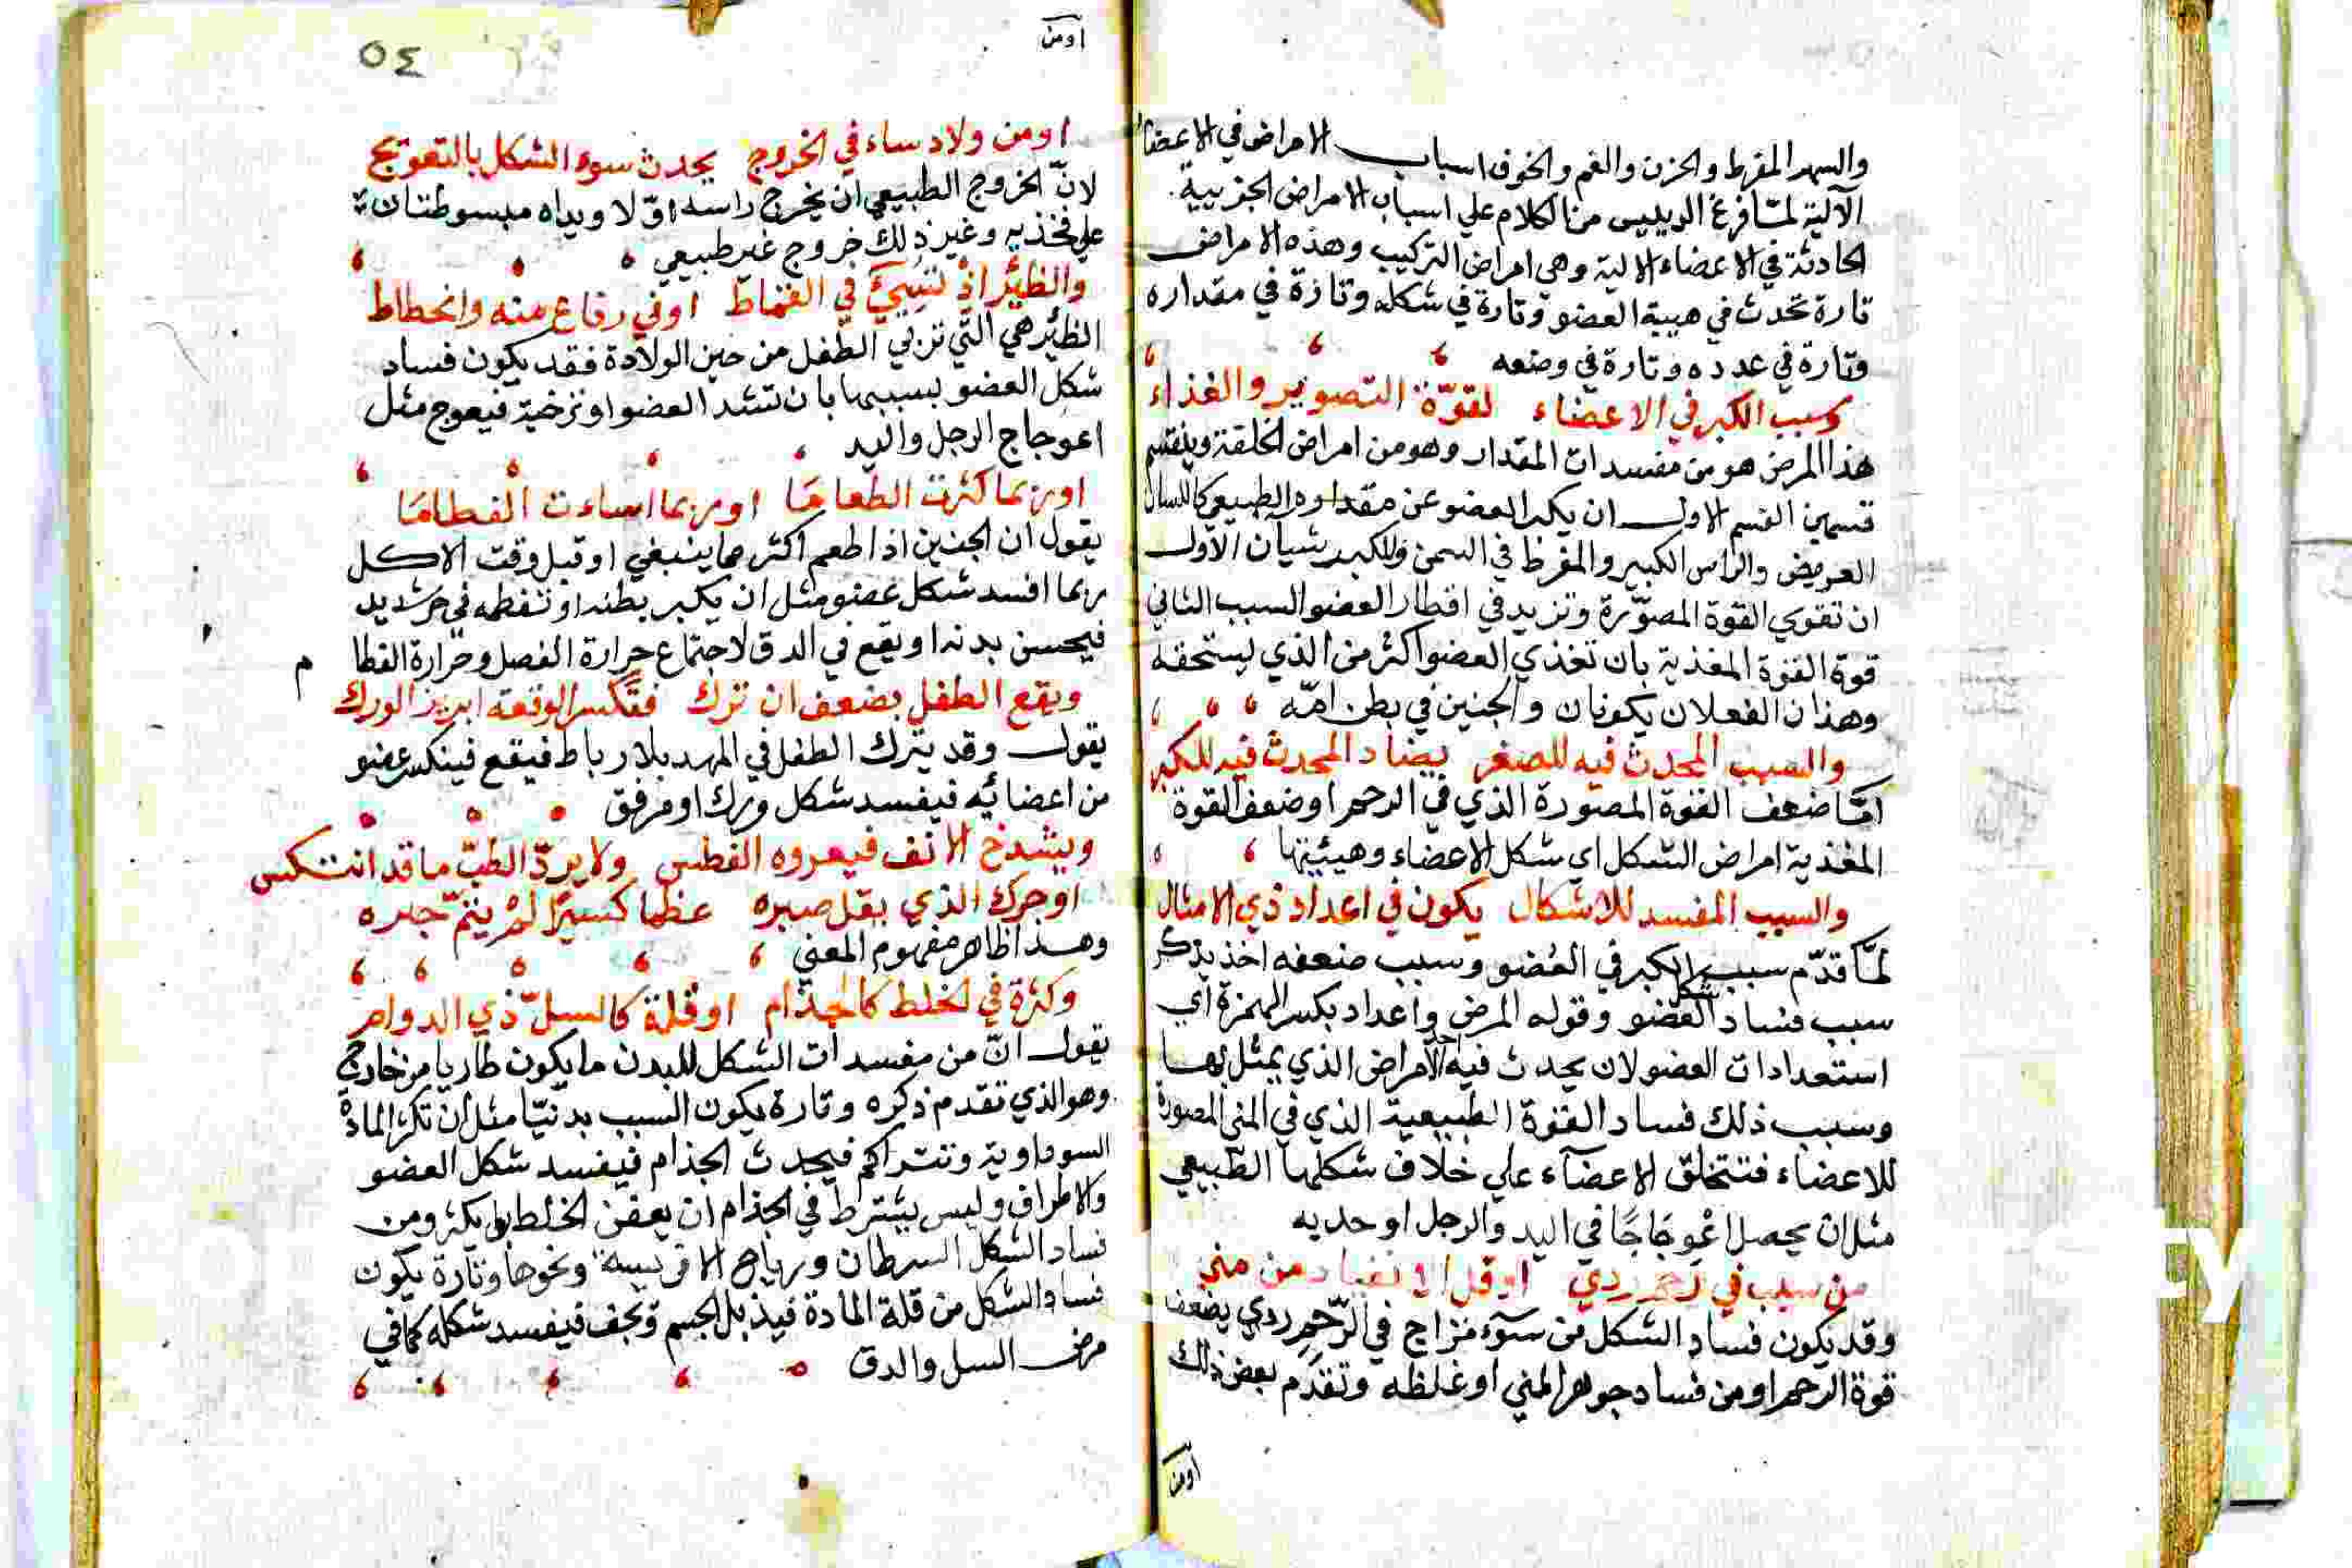 والسهر المفرط والحزن والغم والخوف اسباب الامراض في الاعضا
الآلية لمّا فرغ الرييس من الكلام علي اسباب الامراض الجزيية
الحادثة في الاعضاء الالية وهي امراض التركيب وهذه الامراض
تارة تحدث في هيية العضو وتارة في شكله وتارة في مقداره
وتارة في عدده وتارة في وضعه
وسبب الكبر في الاعضاء لقوّة التصوير والغذاء
هذا المرض هو من مفسدات المقدار وهو من امراض الخلقة وينقسم
قسمين القسم الاول ان يكبر العضو عن مقداره الطبيعي كاللسان
العريض والراس الكبير والمفرط في السمن وللكبر شيآن الأول
ان تقوي القوة المصوّرة وتزيد في اقطار العضو السبب الثاني
قوة القوة المغذية بان تغذي العضو اكثر من الذي يستحقه
وهذان الفعلان يكونان والجنين في بطن امّه
والسبب المحدث فيه للصغر يضاد المحدث فيه للكبر
امّا ضعف القوة المصورة الذي في الرحم او ضعف القوة
المغذية امراض الشكل اي شكل الاعضاء وهيئيتها
والسبب المفسد للاشكال يكون في اعداد ذي الامثال
لمّا قدّم سبب الكبر في العُضو وسبب ضعفه اخذ يذكر
سبب فساد شكل العضو وقوله المرض واعداد بكسر الهمزة اي
استعدادات العضو لان يحدث فيه الأمراض الذي يمثل بها
وسبب ذلك فساد القوة الطبيعية الذي في المني المصورة
للاعضاء فتتخلق الاعضآء علي خلاف شكلها الطّبيعي
مثل ان يحصل اعْوجَاجًا في اليد والرجل او حدبه
من سبب في رحم ردي او قل الانقياد من مني
وقد يكون فساد الشكل من سوٓء مزاج في الرّحم ردي يضعف
قوة الرحم او من فساد جوهر المني او غلظه وتقدّم بعض ذلك
اومن
٥٤
اومن
او من ولاد ساء في الخروج يحدث سوء الشكل بالتعويج
لانّ الخروج الطبيعي ان يخرج راسه اوّلا ويداه مبسوطتان
علي فخذيه وغير ذلك خروج غير طبيعي
والظيْر اذْ تسيئ في القماط او في رفاع منه وانحطاط
الظيْر هي التي تربي الطفل من حين الولادة فقد يكون فساد
شكل العضو بسببها بان تشد العضو او ترخيه فيعوج مثل
اعوجاج الرجل واليد
او ربما كثرت الطعامَا او ربما اساءت الفطامَا
يقول ان الجنين اذا طعم اكثر مما ينبغي او قبل وقت الاكل
ربما افسد شكل عضو مثل ان يكبر بطنه او تفطمه في حر شديد
فيحسن بدنه او يقع في الدق لاجتماع حرارة الفصل وحرارة الفطام
ويقع الطفل بضعف ان ترك فتكسر الوقعة ابريز الورك
يقول وقد يترك الطفل في المهد بلا رباط فيقع فينكسر عضو
من اعضائه فيفسد شكل ورك او مرفق
ويشدخ الانف فيعروه الفطس ولا يردّ الطبّ ما قد انتكس
او حرك الذي يقل صبره عظما كسيرًا لمْ يتمّ جبره
وهذا ظاهر مفهوم المعني
وكثرة في الخلط كالجذام او قلة كالسلّ ذي الدوام
يقول انّ من مفسدات الشكل للبدن ما يكون طاريا من خارج
وهو الذي تقدم ذكره وتارة يكون السبب بدنيّا مثل ان تكثر المادة
السوداوية وتتراكم فيحدث الجذام فيفسد شكل العضو
والاطراف وليس يشترط في الجذام ان يعفن الخلط بل يكثر ومن
فساد الشكل السرطان ورياح الافريسه ونحوها وتارة يكون
فساد الشكل من قلة المادة فيذبل الجسم ويجف فيفسد شكله كما في
مرض السل والدق